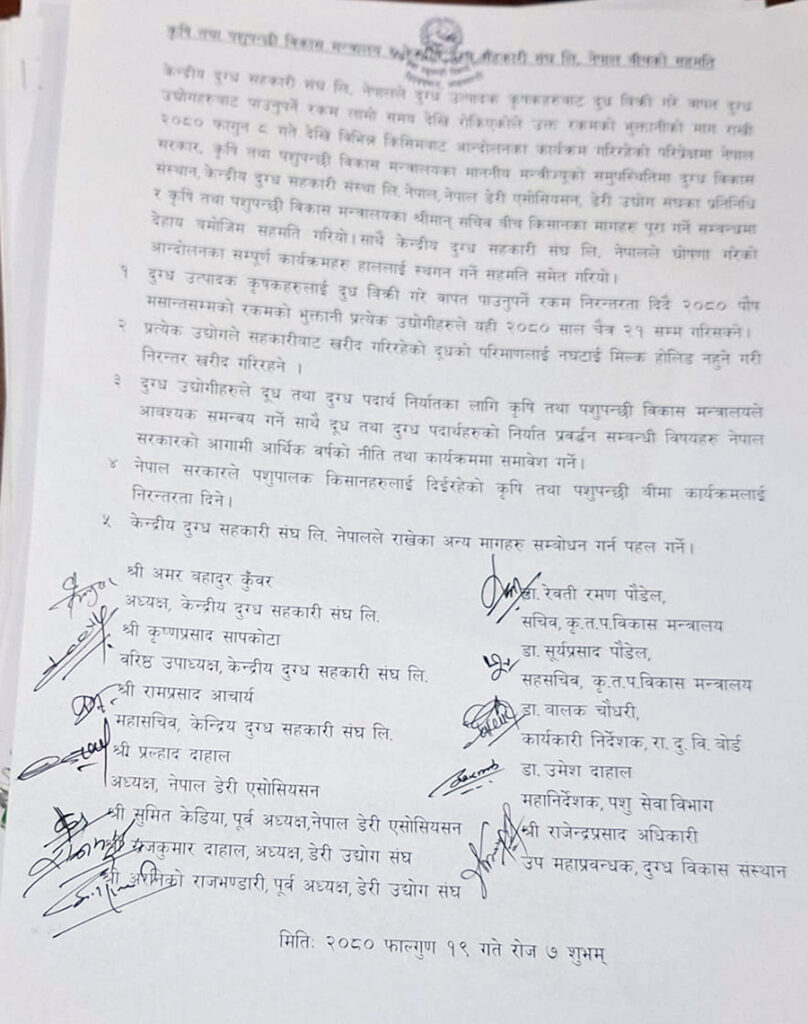 कृषि तथा पशुपन्छी विकास मन्त्रालय र केन्द्रीय दुग्ध सहकारी संघ लि. नेपाल बीचको सहमति
केन्द्रीय दुग्ध सहकारी संघ लि. नेपालले दुग्ध उत्पादक कृषकहरुबाट दुध विक्री गरे वापत दुग्ध
उद्योगहरुबाट पाउनुपर्ने रकम लामो समय देखि रोकिएकोले उक्त रकमको भुक्तानीको माग राखी
२०८० फागुन ८ गते देखि विभिन्न किसिमबाट आन्दोलनका कार्यक्रम गरिरहेको परिप्रेक्षमा नेपाल
सरकार, कृषि तथा पशुपन्छी विकास मन्त्रालयका माननीय मन्त्रीज्यूको समुपस्थितिमा दुग्ध विकास
संस्थान, केन्द्रीय दुग्ध सहकारी संस्था लि. नेपाल, नेपाल डेरी एसोसियसन, डेरी उद्योग संघका प्रतिनिधि
र कृषि तथा पशुपन्छी विकास मन्त्रालयका श्रीमान् सचिव बीच किसानका मागहरु पूरा गर्ने सम्बन्धमा
देहाय बमोजिम सहमति गरियो। साथै केन्द्रीय दुग्ध सहकारी संघ लि. नेपालले घोषणा गरेको
आन्दोलनका सम्पूर्ण कार्यक्रमहरु हाललाई स्थगन गर्ने सहमति समेत गरियो।
१ दुग्ध उत्पादक कृषकहरुलाई दुध विक्री गरे वापत पाउनुपर्ने रकम निरन्तरता दिदै २०८० पौष
मसान्तसम्मको रकमको भुक्तानी प्रत्येक उद्योगीहरुले यही २०८० साल चैत्र २१ सम्म गरिसक्ने।
२ प्रत्येक उद्योगले सहकारीबाट खरीद गरिरहेको दूधको परिमाणलाई नघटाई मिल्क होलिड नहुने गरी
निरन्तर खरीद गरिरहने ।
३ दुग्ध उद्योगीहरुले दूध तथा दुग्ध पदार्थ निर्यातका लागि कृषि तथा पशुपन्छी विकास मन्त्रालयले
आवश्यक समन्वय गर्ने साथै दूध तथा दुग्ध पदार्थहरुको निर्यात प्रवर्द्धन सम्बन्धी विषयहरु नेपाल
सरकारको आगामी आर्थिक वर्षको नीति तथा कार्यक्रममा समावेश गर्ने।
४ नेपाल सरकारले पशुपालक किसानहरुलाई दिईरहेको कृषि तथा पशुपन्छी वीमा कार्यक्रमलाई
निरन्तरता दिने।
५ केन्द्रीय दुग्ध सहकारी संघ लि. नेपालले राखेका अन्य मागहरु सम्बोधन गर्न पहल गर्ने।
श्री अमर वहादुर कुँवर
अध्यक्ष, केन्द्रीय दुग्ध सहकारी संघ लि.
श्री कृष्णप्रसाद सापकोटा
वरिष्ठ उपाध्यक्ष, केन्द्रीय दुग्ध सहकारी संघ लि.
श्री रामप्रसाद आचार्य
महासचिव, केन्द्रिय दुग्ध सहकारी संघ लि.
श्री प्रल्हाद दाहाल
अध्यक्ष, नेपाल डेरी एसोसियसन
श्री सुमित केडिया, पूर्व अध्यक्ष,नेपाल डेरी एसोसियसन
राजकुमार दाहाल, अध्यक्ष, डेरी उद्योग संघ
श्री अरनिको राजभण्डारी, पूर्व अध्यक्ष, डेरी उद्योग संघ
डा. रेवती रमण पौडेल,
सचिव, कृ.त.प.विकास मन्त्रालय
डा. सूर्यप्रसाद पौडेल,
सहसचिव, कृ.त.प.विकास मन्त्रालय
डा. वालक चौधरी,
कार्यकारी निर्देशक, रा. दु. वि. वोर्ड
डा. उमेश दाहाल
महानिर्देशक, पशु सेवा विभाग
श्री राजेन्द्रप्रसाद अधिकारी
उप महाप्रवन्धक, दुग्ध विकास संस्थान
मितिः २०८० फाल्गुण १९ गते रोज ७ शुभम्